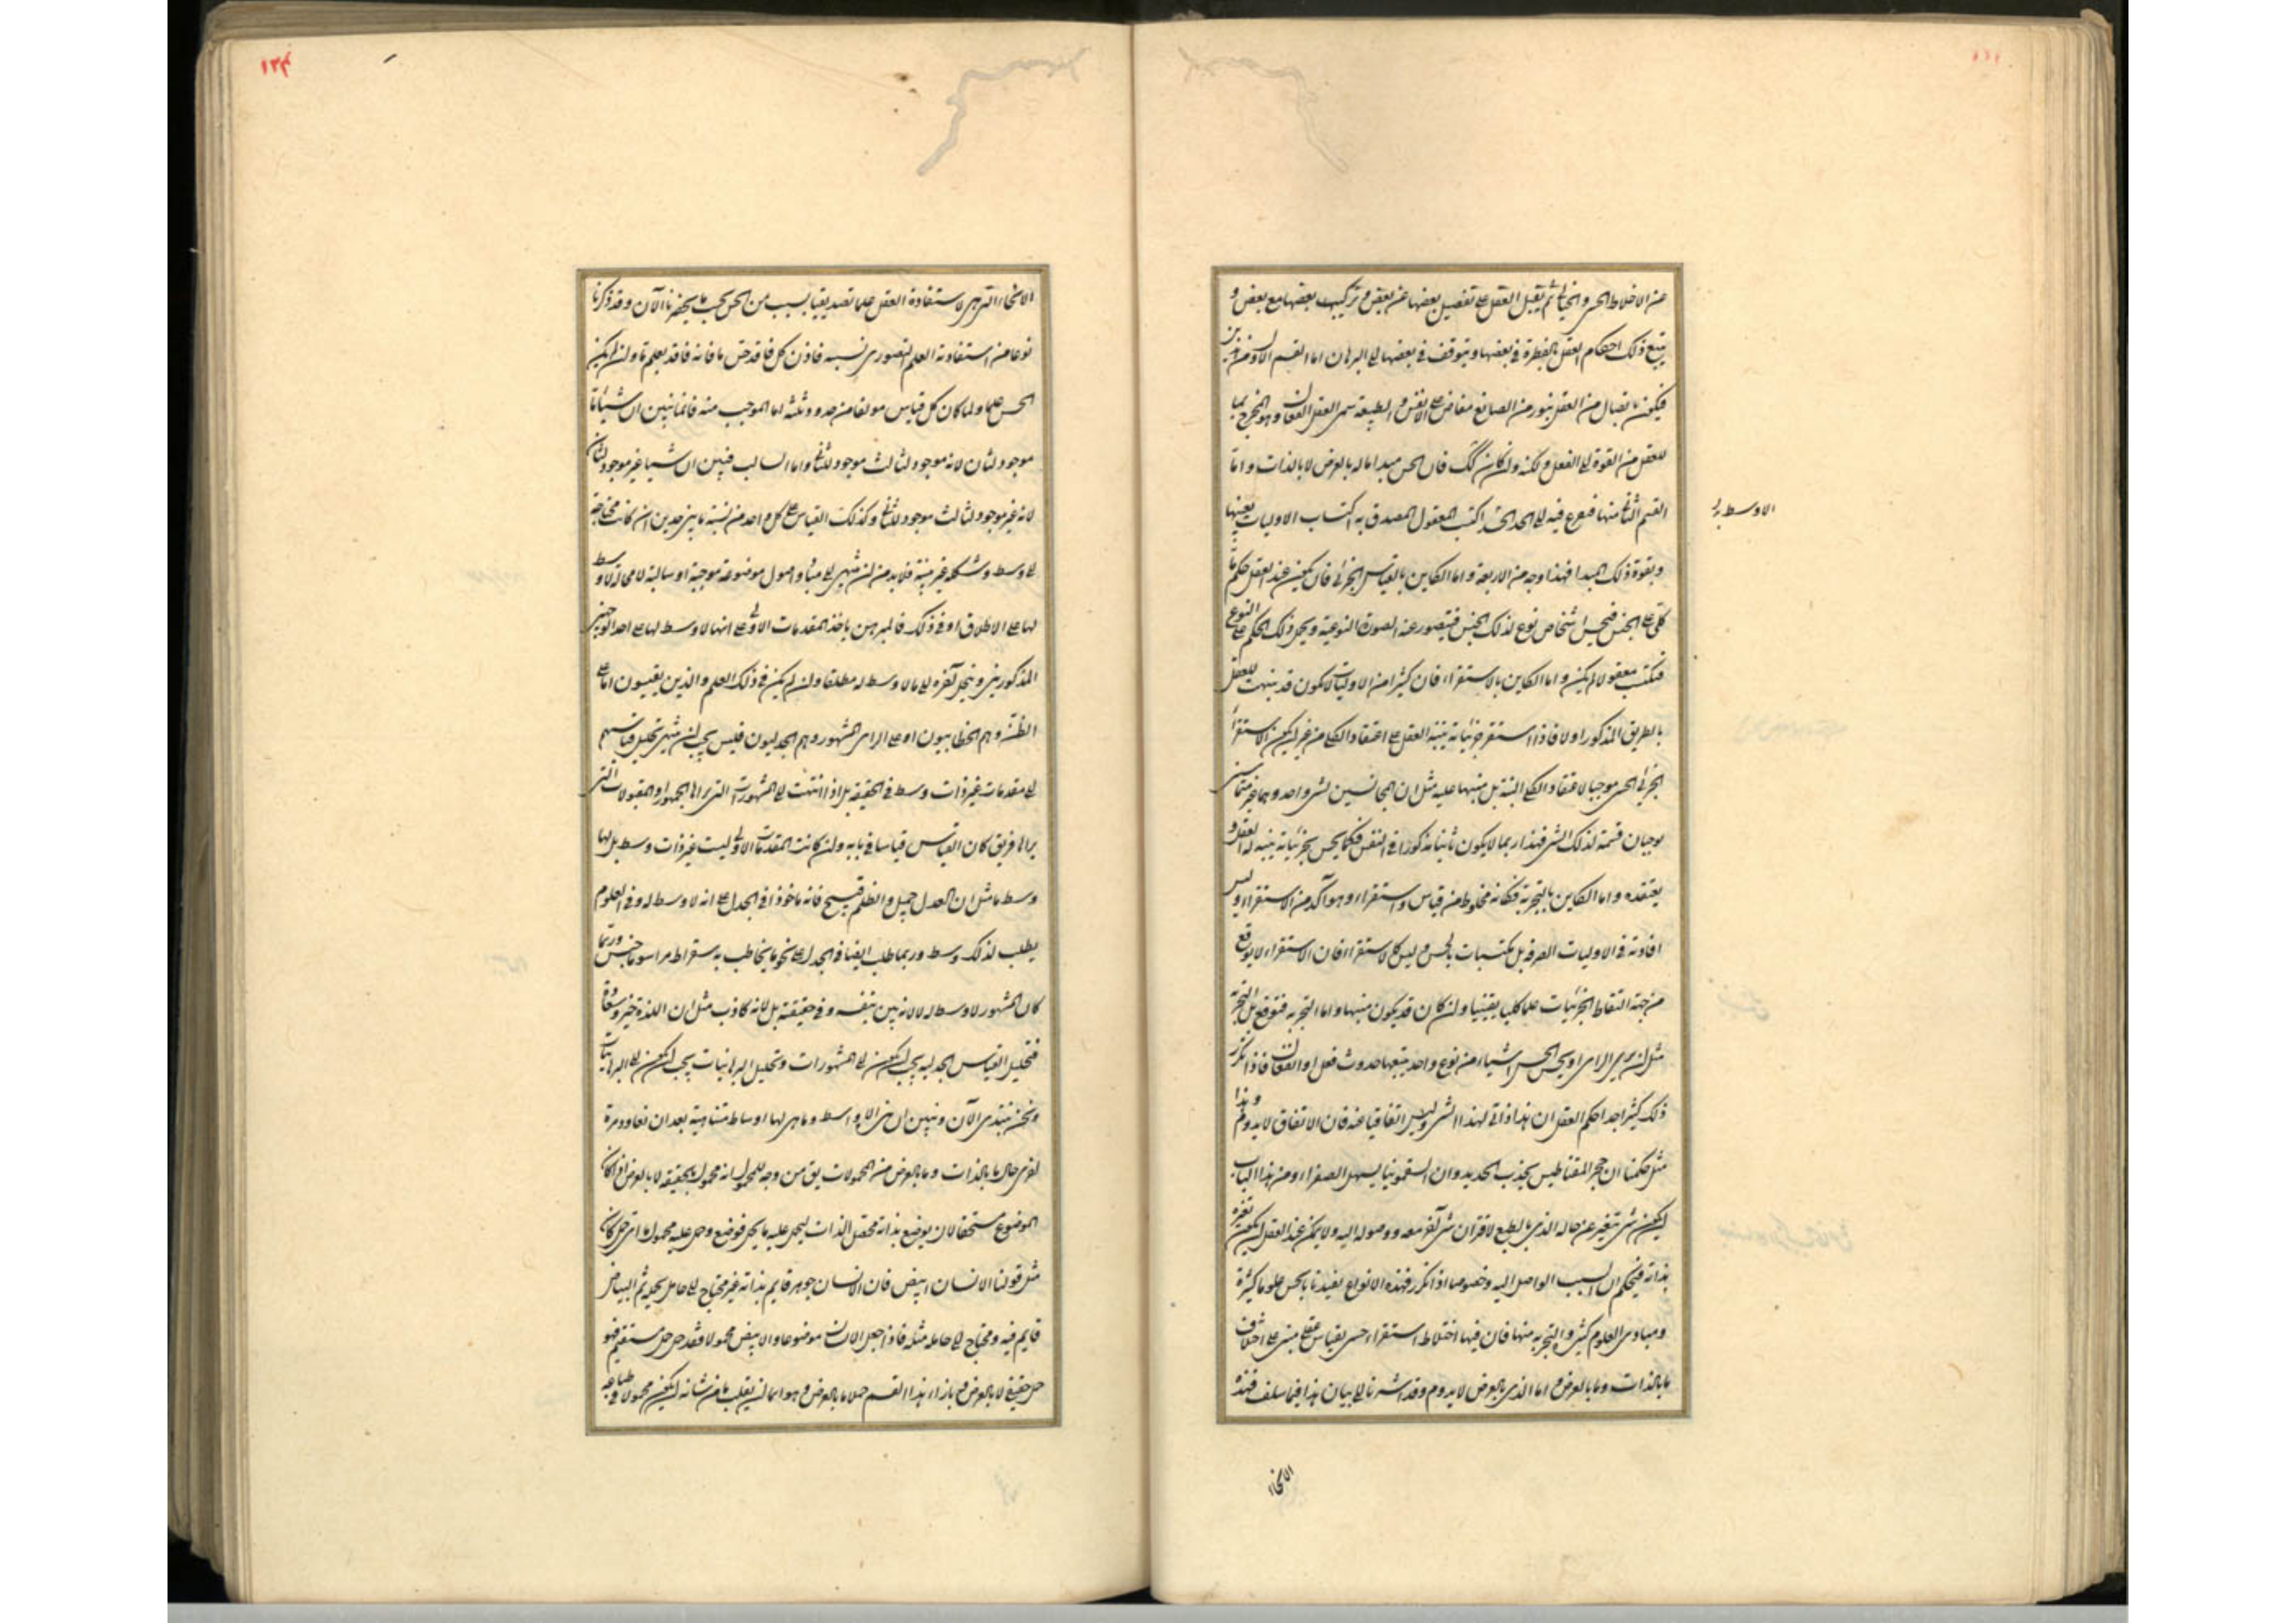 عن الاخلاط الحسى والخيالى ثم يقبل العقل على تفصيل بعضها عن بعض و تركيب بعضها مع بعض و
يتبع ذلك احكام العقل بالفطرة فى بعضها ويتوقف فى بعضها الى البرهان اما القسم الاول من هذين
فيكون باتصال من العقل بنور من الصانع مفاض على الانفس و الطبيعة يسمى العقل الفعال وهو المخرج
للعقل من القوة الى الفعل و لكنه وان كان كك فان الحس مبدا ما له بالعرض لا بالذات و اما
القسم الثانى منها فيفزع فيه الى الحد اكتسب المعقول المصدق به اكتساب الاوليات بعينها
الاوسط
وبقوة ذلك المبدا فهذا وجه من الاربعة و اما الكاين بالقياس الجزئى فان يكون عند العقل حكم ما
كلى على الجنس فيحس اشخاص نوع لذلك الجنس فيتصور عنه الصورة النوعية ويحمل ذلك الحكم على النوع
فيكتسب معقولا لم يكن و اما الكاين بالاستقراء فان كثيرا من الاوليات لا تكون قد تبينت للعقل
بالطريق المذكور اولا فاذا استقرء جزئياته تنبه العقل على اعتقاد الكلى من غير ان يكون الاستقراء
الجزئى الحسى موجبا لاعتقاد الكلى البتة بل منبها عليه مثل ان المماسين لشى واحد وهما غير متماسين
يوجبان قسمة لذلك الشى فهذا ربما لا يكون ثابتا مذكورا فى النفس فكما يحس بجزئياته يتنبه له العقل و
يعتقده و اما الكاين بالتجربة فكانه مخلوط من قياس واستقراء وهو آكد من الاستقراء وليس
افادته فى الاوليات الصرفة بل بمكتسبات الحس وليس كالاستقراء فان الاستقراء لا يوقع
من جهة التقاط الجزئيات علما كليا يقينيا وان كان قد يكون منبها و اما التجربة فتوقع بل التجربة
مثل ان يرى الرائى او يحس الحاس اشياء من نوع واحد يتبعها حدوث فعل او انفعال فاذا تكرر
ذلك كثيرا جدا حكم العقل ان هذا ذاتى لهذا الشى وليس اتفاقيا عنه فان الاتفاق لا يدوم وهذا
مثل حكمنا ان حجر المقناطيس يجذب الحديد وان السقمونيا يسهل الصفراء ومن هذا الباب
ان يكون شى يتغير عن حاله الذى بالطبع لاقتران شى آخر معه ووصوله اليه ولا يمكن عند العقل ان يكون تغيره
بذاته فيحكم ان السبب الواصل اليه وخصوصا اذا تكرر فهذه الانواع يفيدنا بالحس علوما كثيرة
ومبادى العلوم كثيرة والتجربة منها فان فيها اختلاط استقراء حسى بقياس عقلى مبنى على اختلاف
ما بالذات وما بالعرض و اما الذى بالعرض لا يدوم وقد اشرنا الى بيان هذا فيما سلف فهذه
الانحاء
۱۲۴
الانحاء التى هى لاستفادة العقل علما تصديقيا بسبب من الحس بحسب ما يحضرنا الآن وقد ذكرنا
نوعا من استفادته العلم التصورى بسببه فاذن كل فاقد حس ما فانه فاقد لعلم ما وان لم يكن
الحس علما ولما كان كل قياس مولفا من حدود ثلثة اما الموجب منه فانما يبين ان شيئا ما
موجود لثان لانه موجود لثالث موجود للثانى واما السالب فيبين ان شيئا غير موجود لثان
لانه غير موجود لثالث موجود للثانى وكذلك القياس على كل واحد من نسبة ما بين حدين ان كانت محتاجة
الى وسط وشكله غير بينة فلا بد من ان ننتهى الى مبادى واصول موضوعة موجبة او سالبة لا محالة لا وسط
لها على الاطلاق او فى ذلك فالمبرهن ياخذ المقدمات الاولى على انها لا وسط لها على احد الوجهين
المذكورين وينحل آخره الى ما لا وسط له مطلقا وان لم يكن فى ذلك العلم والذين يقيسون اما على
الظن وهم الخطابيون او على الراى المشهور وهم الجدليون فليس يجب ان ينتهى تحليل قياسهم
الى مقدمات غير ذات وسط فى الحقيقة بل اذا انتهت الى المشهورات التى يراها الجمهور او المقبولات التى
يراها فريق كان القياس قياسا فى بابه وان كانت المقدمات الاولى ليست غير ذات وسط بل لها
وسط ما مثل ان العدل جميل والظلم قبيح فانه ماخوذ فى الجدل على انه لا وسط له وفى العلوم
يطلب لذلك وسط وربما طلب ايضا فى الجدل على نحو ما يخاطب به سقراط وربما
كان المشهور لا وسط له لا لانه بين بنفسه وفى حقيقته بل لانه كاذب مثل ان اللذة خير وسعادة
فتحليل القياس الجدلية يجب ان يكون الى المشهورات وتحليل البرهانيات يجب ان يكون الى البرهانيات
ونحن نبتدى الآن ونبين ان هذى الاواسط وما هى لها اوساط متناهية بعد ان نعاود مرة
اخرى حال ما بالذات وما بالعرض من المحمولات يق من وجه للمحمول انه محمول بالحقيقة لا بالعرض اذا كان
الموضوع مستحقا لان يوضع بذاته محصل الذات ليحمل عليه ما يحمل فوضع وحمل عليه محمول ما اى حمل كان
مثل قولنا الانسان ابيض فان الانسان جوهر قايم بذاته غير محتاج الى حامل يحمله ثم البياض
قايم فيه ومحتاج الى حامل مثله فاذا جعل الانسان موضوعا والابيض محمولا فقد حمل حمل مستقيم فهو
حمل حقيقى لا بالعرض و بازاء هذا القسم حملا ما بالعرض و هو اما ان يقلب ما من شانه ان يكون محمولا